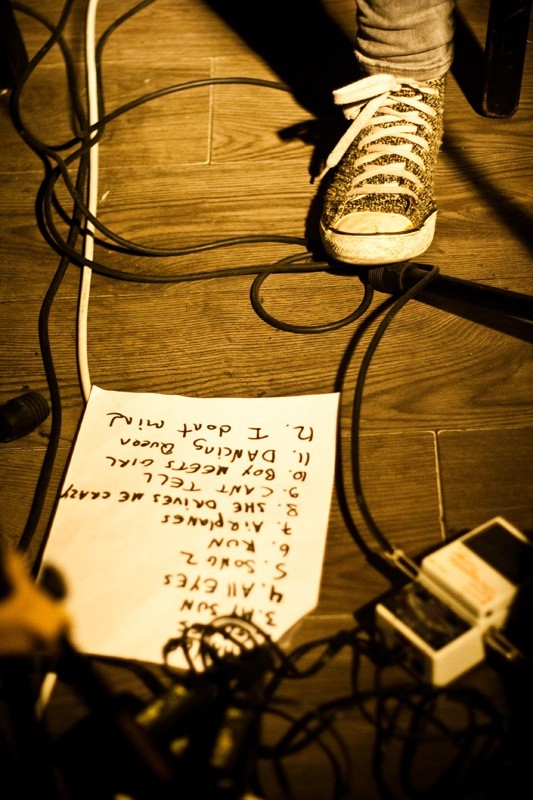 3. MY SUN
4. All EYES
5. SONG 2
6. RUN
7. AIRPLANES
8. SHE DRIVES ME CRAZY
9. CANT TELL
10. BOY MEETS GIRL
11. DANCING QUEEN
12. I dont mind